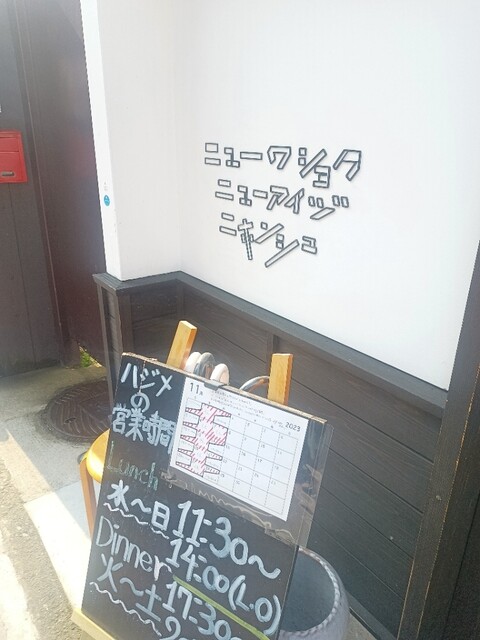 ニューワショク
ニューアイヅ
ニホンシュ
11月
2023
ハジメ
の
営業時間
Lunch
水〜日 11:30〜
14:00(L.O)
Dinner
火〜土 17:30